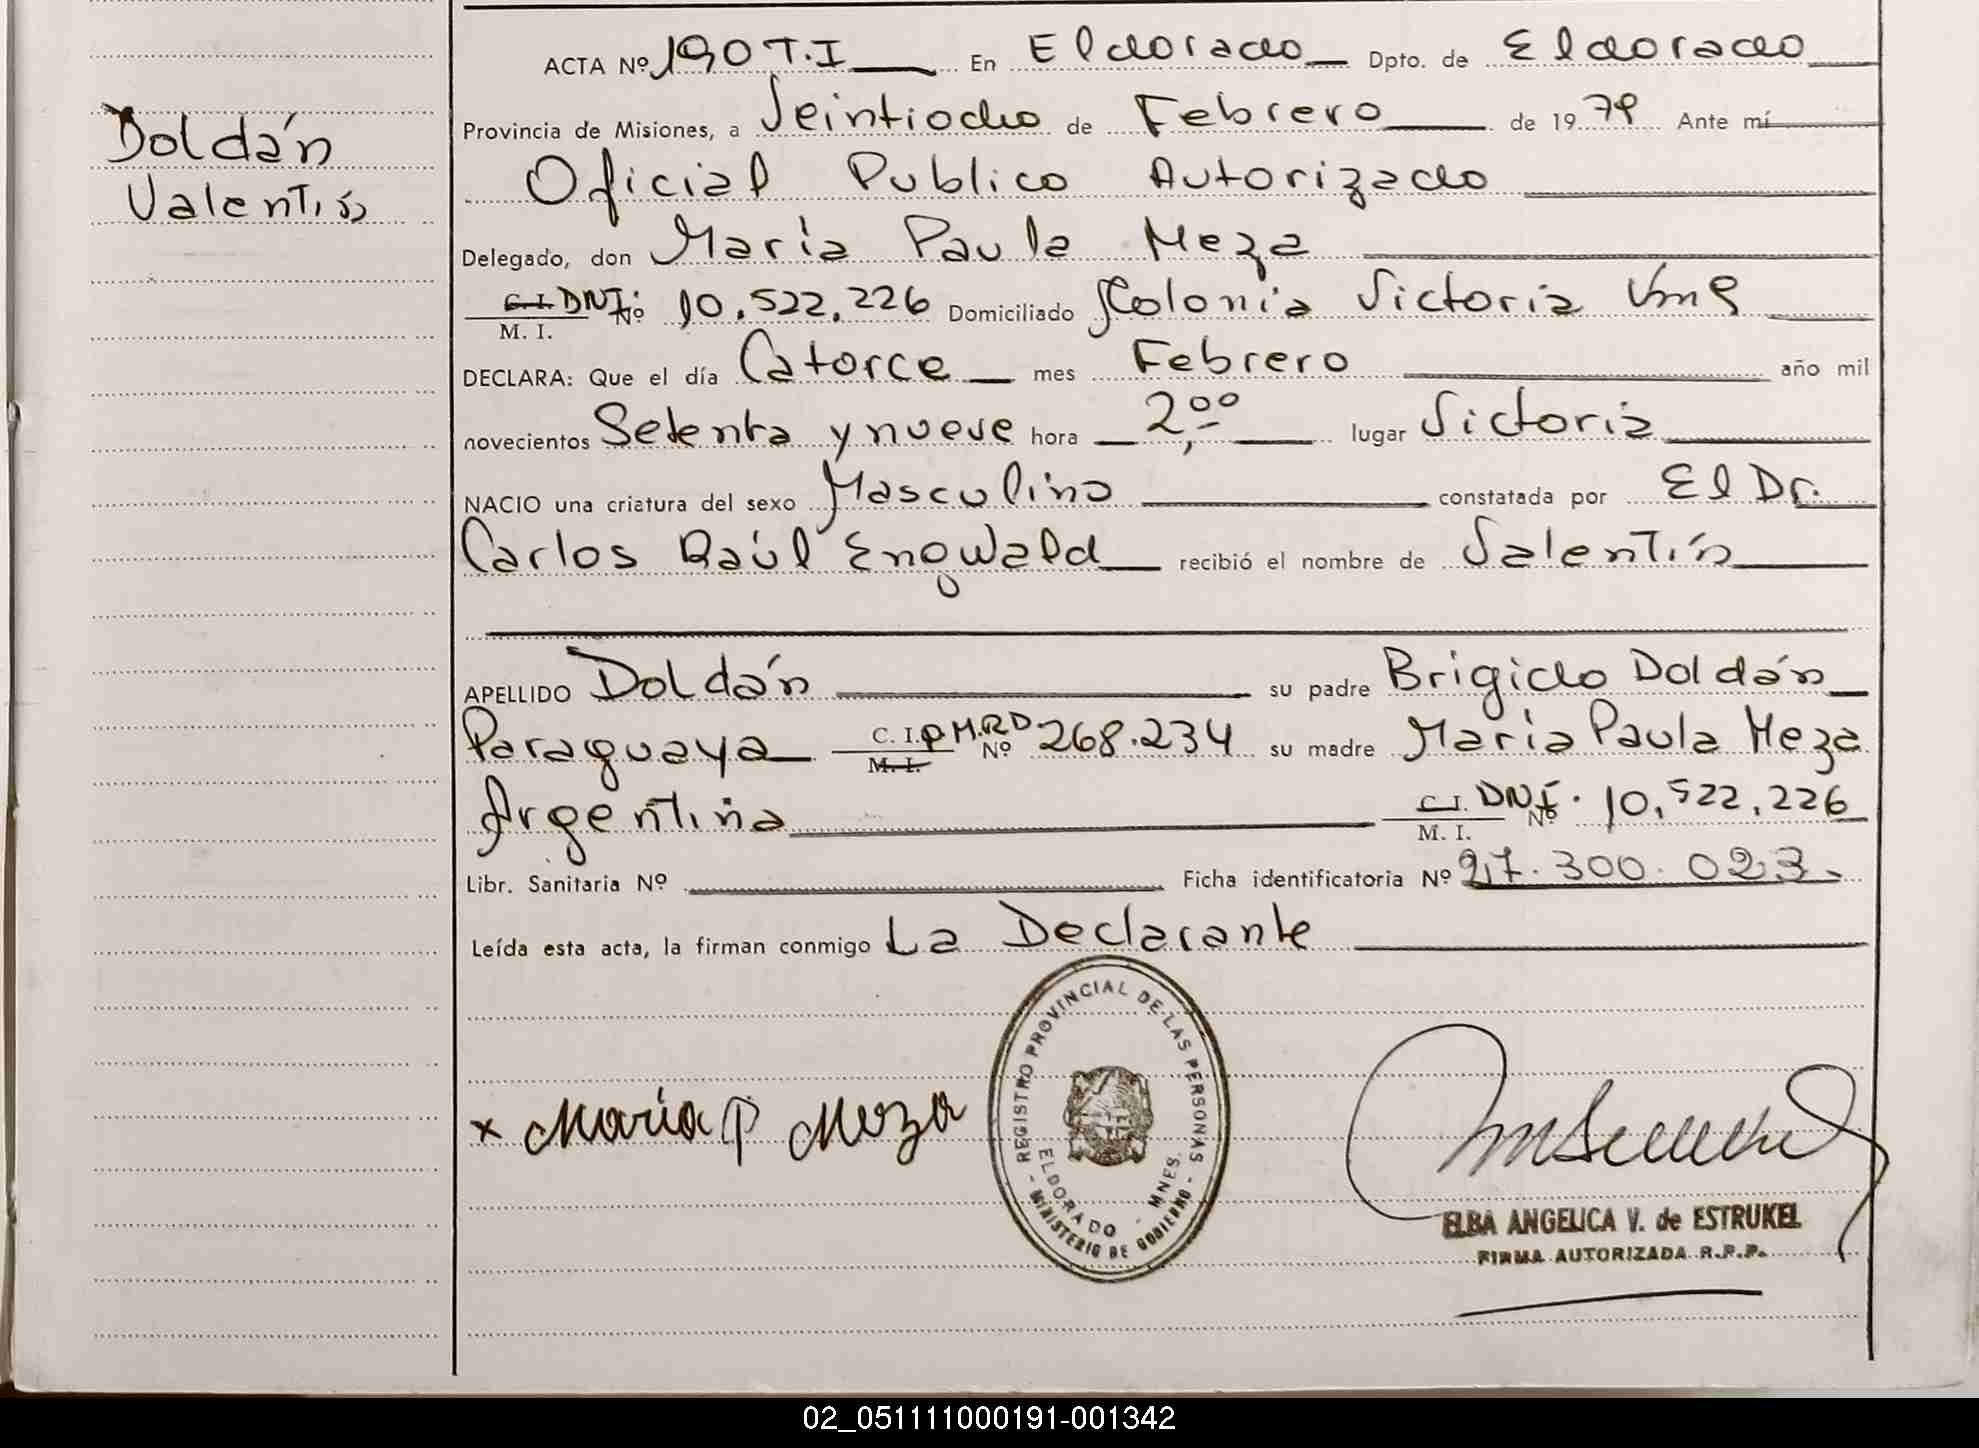 ACTA Nº 190 T.I En Eldorado Dpto. de Eldorado
Doldán
Valentín
Provincia de Misiones, a Veintiocho de Febrero de 1979 Ante mí
Oficial Publico Autorizado
Delegado, don María Paula Meza
C.I. DNI. Nº 10.522.226 Domiciliado Colonia Victoria Mnes
M. I.
DECLARA: Que el día Catorce mes Febrero año mil
novecientos Setenta y nueve hora 2,00 lugar Victoria
NACIO una criatura del sexo Masculino constatada por El Dr.
Carlos Raúl Engwald recibió el nombre de Valentín
APELLIDO Doldán su padre Brigido Doldán
Paraguaya C. I. P.M.RD Nº 268.234 su madre María Paula Meza
M. I.
Argentina C.I. DNI. Nº 10.522.226
M. I.
Libr. Sanitaria Nº Ficha identificatoria Nº 27.300.023.
Leída esta acta, la firman conmigo La Declarante
REGISTRO PROVINCIAL DE LAS PERSONAS
ELDORADO - MNES.
- MINISTERIO DE GOBIERNO -
x María P Meza
ELBA ANGELICA V. de ESTRUKEL
FIRMA AUTORIZADA R.P.P.
02_051111000191-001342